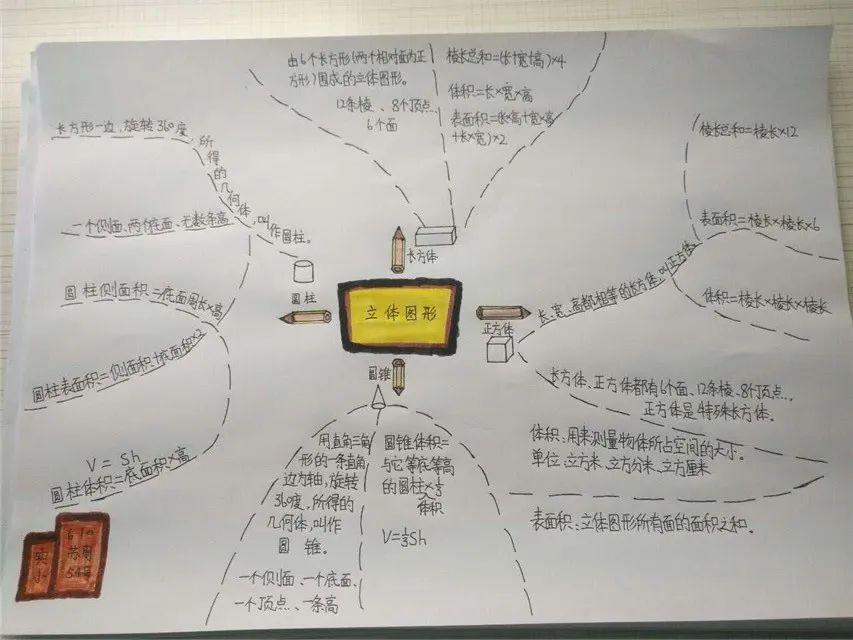 由6个长方形(两个相对面为正
方形)围成的立体图形。
12条棱、8个顶点
6个面
棱长总和=(长+宽+高)×4
体积=长×宽×高
表面积=(长×高+宽×高
+长×宽)×2
长方体
长方形一边,旋转360度
所得的几何体,叫作圆柱。
一个侧面、两个底面、无数条高
圆柱侧面积=底面周长×高
圆柱表面积=侧面积+底面积×2
V=Sh
圆柱体积=底面积×高
圆柱
立体图形
正方体
长、宽、高都相等的长方体,叫正方体
棱长总和=棱长×12
表面积=棱长×棱长×6
体积=棱长×棱长×棱长
长方体、正方体都有6个面、12条棱、8个顶点,
正方体是特殊长方体。
体积:用来测量物体所占空间的大小。
单位:立方米、立方分米、立方厘米
表面积:立体图形所有面的面积之和。
圆锥
用直角三角
形的一条直角
边为轴,旋转
360度,所得的
几何体,叫作
圆锥。
一个侧面、一个底面、
一个顶点、一条高
圆锥体积=
与它等底等高
的圆柱×⅓
体积
V=⅓Sh
实
小
610
苏周
54号